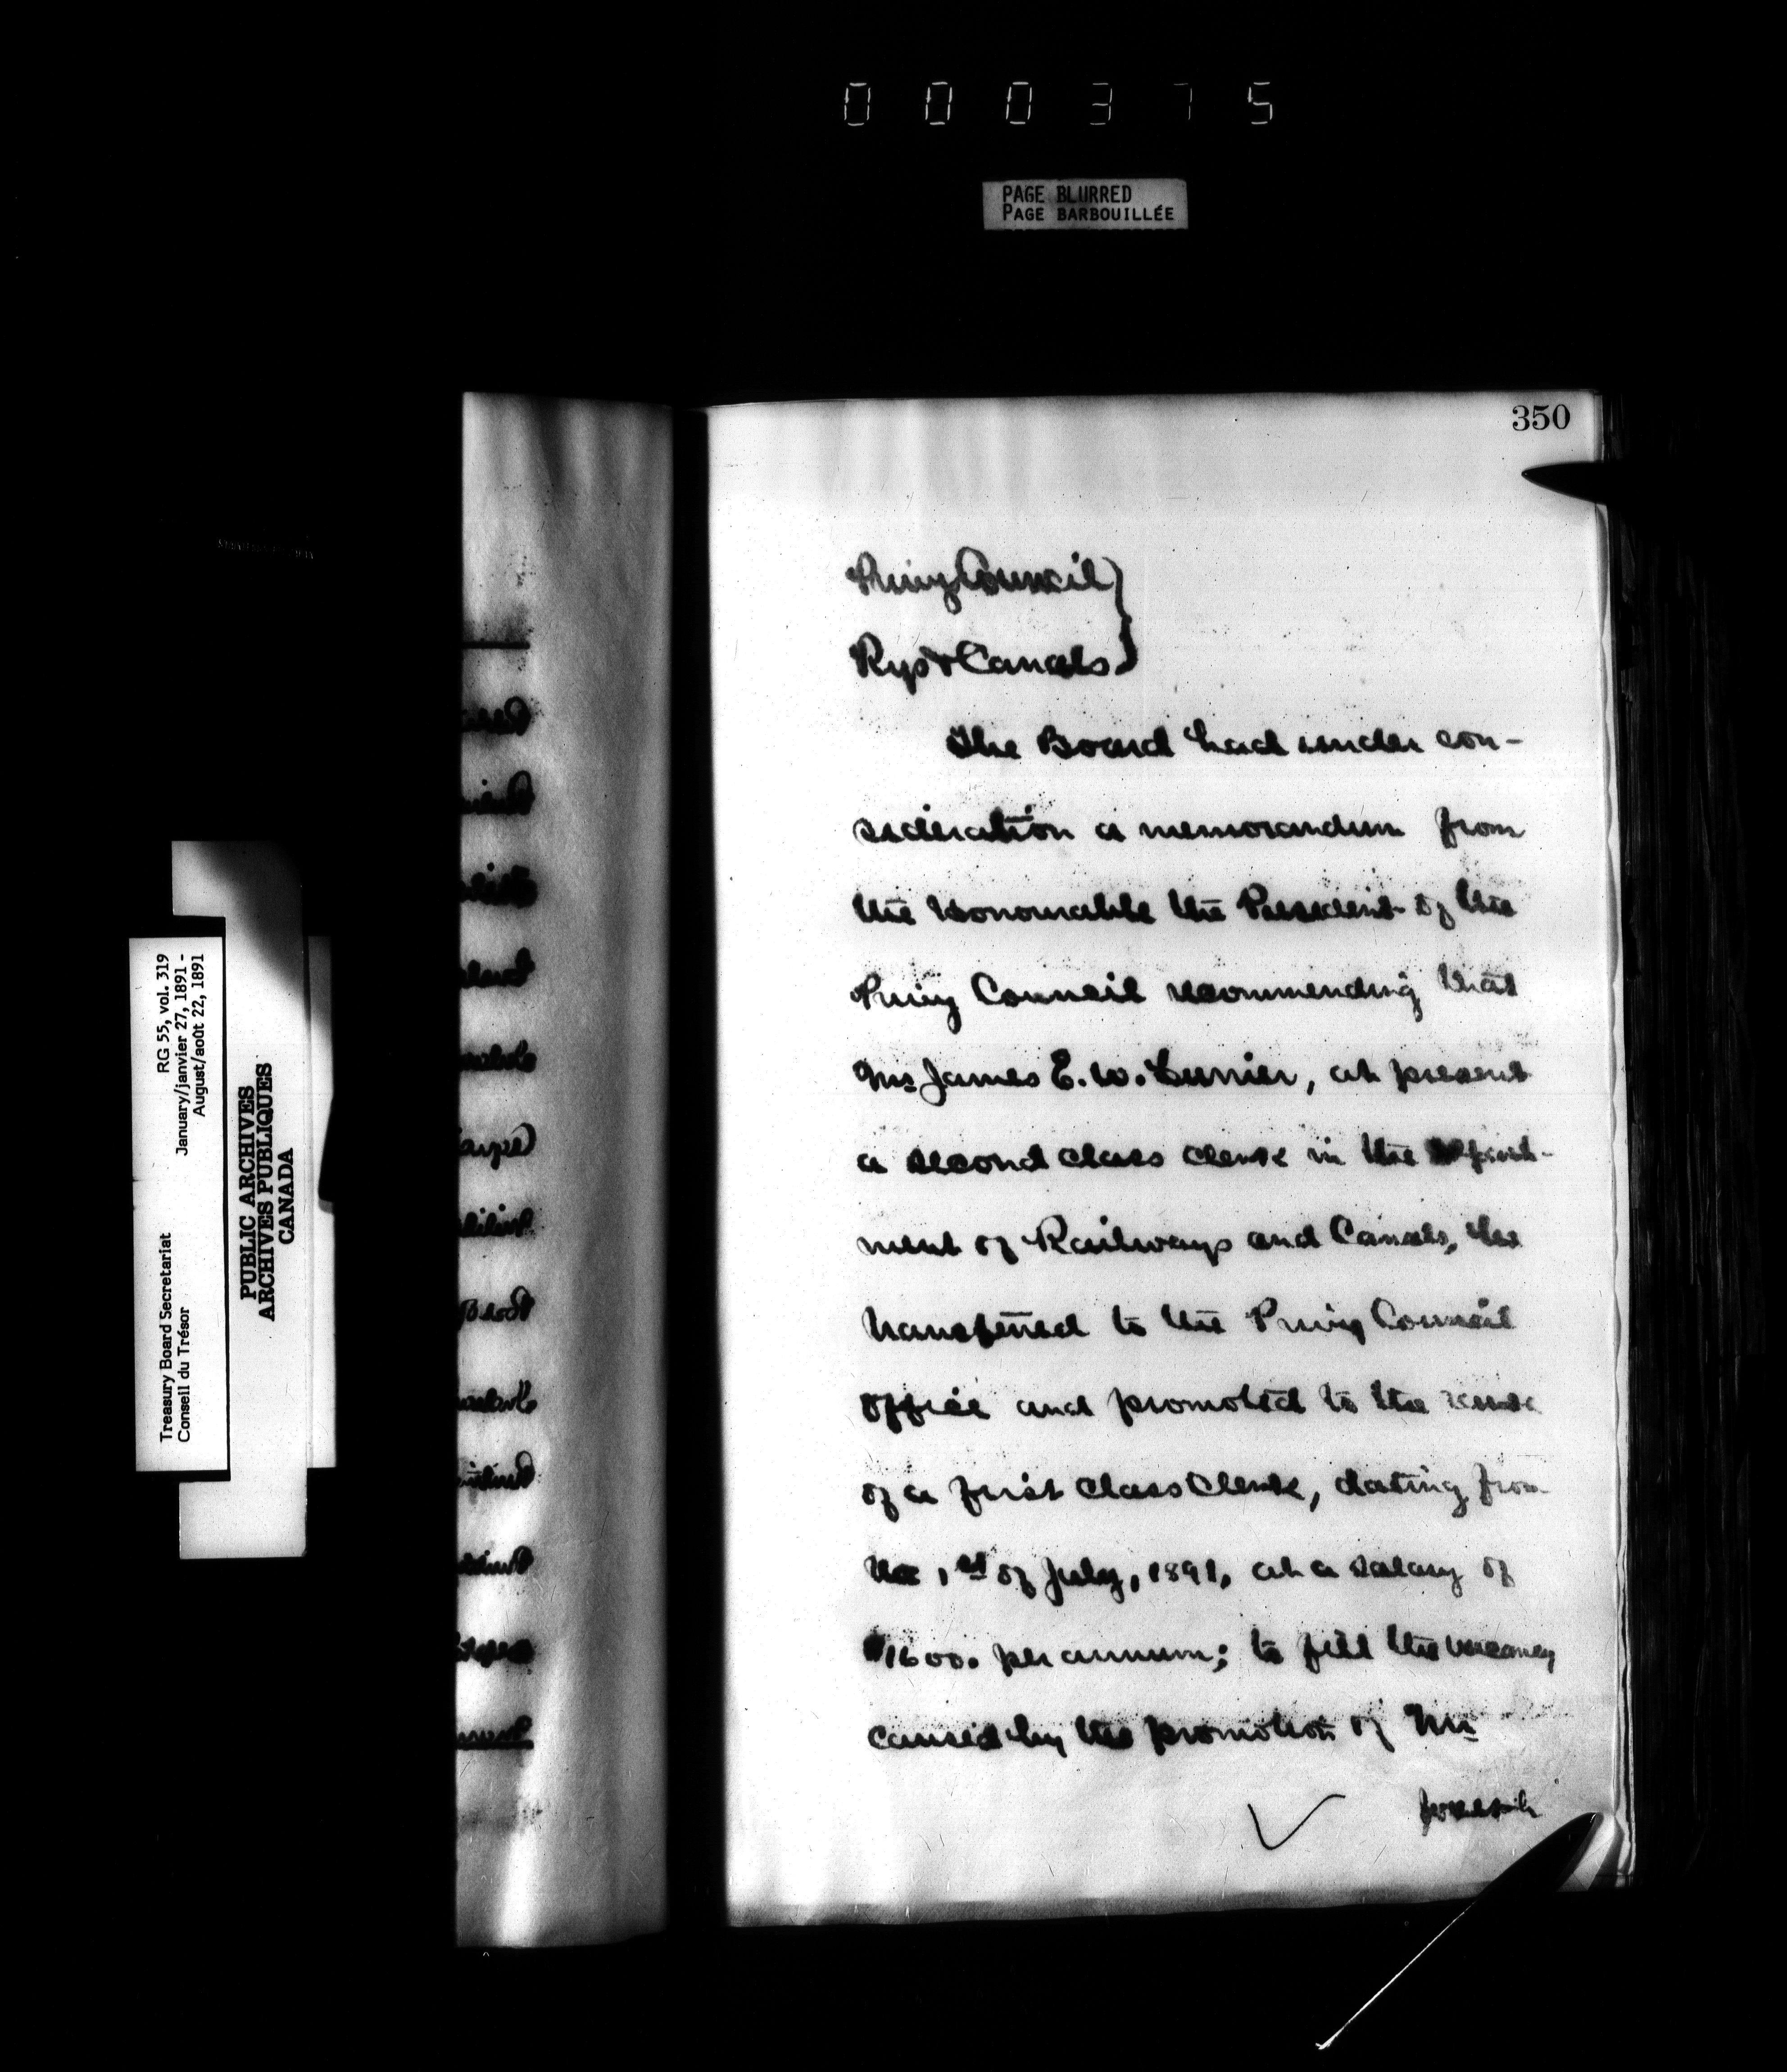 000375
PAGE BLURRED
PAGE BARBOUILLÉE
350
Privy Council }
Rys & Canals }
The Board had under con-
sideration a memorandum from
the Honourable the President of the
Privy Council recommending that
Mr James E. W. Currier, at present
a second class clerk in the Depart-
ment of Railways and Canals, be
transferred to the Privy Council
Office and promoted to the rank
of a first class Clerk, dating from
the 1st of July, 1891, at a salary of
$1600. per annum; to fill the vacancy
caused by the promotion of Mr
Joseph
RG 55, vol. 319
January/janvier 27, 1891 -
August/août 22, 1891
Treasury Board Secretariat
Conseil du Trésor
PUBLIC ARCHIVES
ARCHIVES PUBLIQUES
CANADA